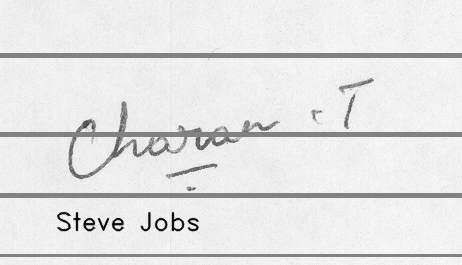 Charan . T
Steve Jobs